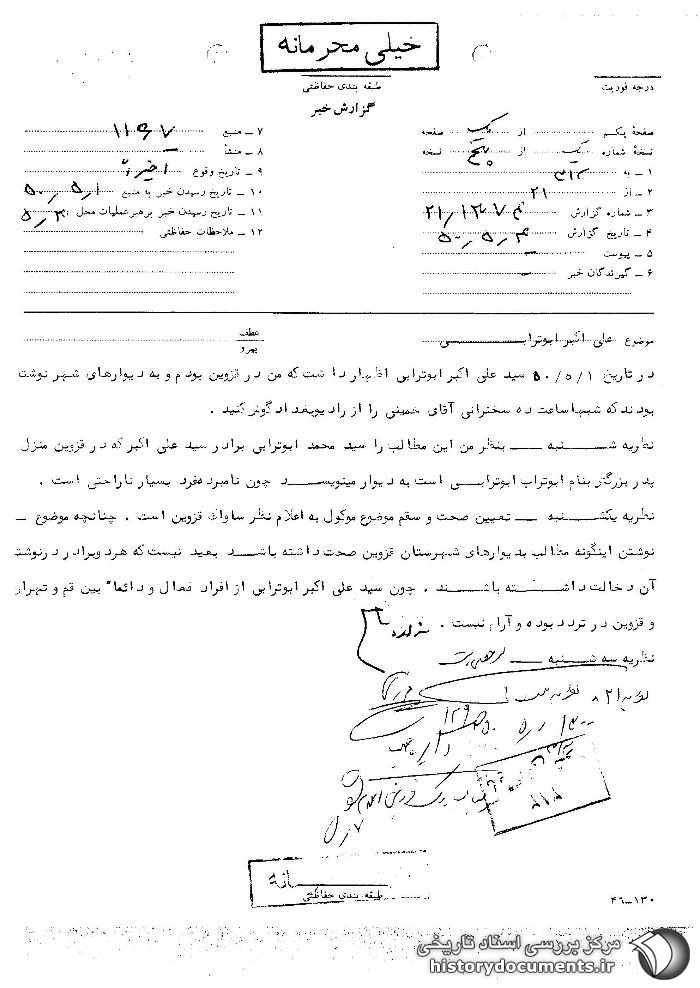 خیلی محرمانه
طبقه بندی حفاظتی
درجه فوریت
گزارش خبر
صفحهٔ یکم از یک صفحه
نسخهٔ شماره یک از پنج نسخه
۱ ـ به ۳۱۲
۲ ـ از ۲۱
۳ ـ شماره گزارش
۴ ـ تاریخ گزارش
۵ ـ پیوست ـ
۶ ـ گیرندگان خبر ـ
۷ ـ منبع ۱۱۶۷
۸ ـ منشأ ـ
۹ ـ تاریخ وقوع اخیراً
۱۰ ـ تاریخ رسیدن خبر به منبع ۵۰/۵/۱
۱۱ ـ تاریخ رسیدن خبر برهبر عملیات محل
۱۲ ـ ملاحظات حفاظتی ـ
موضوع علی اکبر ابوترابی
عطف
پیرو
در تاریخ ۵۰/۵/۱ سید علی اکبر ابوترابی اظهار داشت که من در قزوین بودم و به دیوارهای شهر نوشته
بودند که شبها ساعت ده سخنرانی آقای خمینی را از رادیو بغداد گوش کنید .
نظریه شنبه ـ بنظر من این مطالب را سید محمد ابوترابی برادر سید علی اکبر که در قزوین منزل
پدر بزرگش بنام ابوتراب ابوترابی است به دیوار مینویسد چون نامبرده فرد بسیار ناراحتی است .
نظریه یکشنبه ـ تعیین صحت و سقم موضوع موکول به اعلام نظر ساواک قزوین است . چنانچه موضوع ـ
نوشتن اینگونه مطالب بدیوارهای شهرستان قزوین صحت داشته باشد بعید نیست که هر دو برادر در نوشتن
آن دخالت داشته باشند . چون سید علی اکبر ابوترابی از افراد فعال و دائماً بین قم و تهران
و قزوین در تردد بوده و آرام نیست .
نظریه سه شنبه ـ
نظریه ۲۱ ـ
طبقه بندی حفاظتی
۴۶-۱۳۰
مرکز بررسی اسناد تاریخی
historydocuments.ir